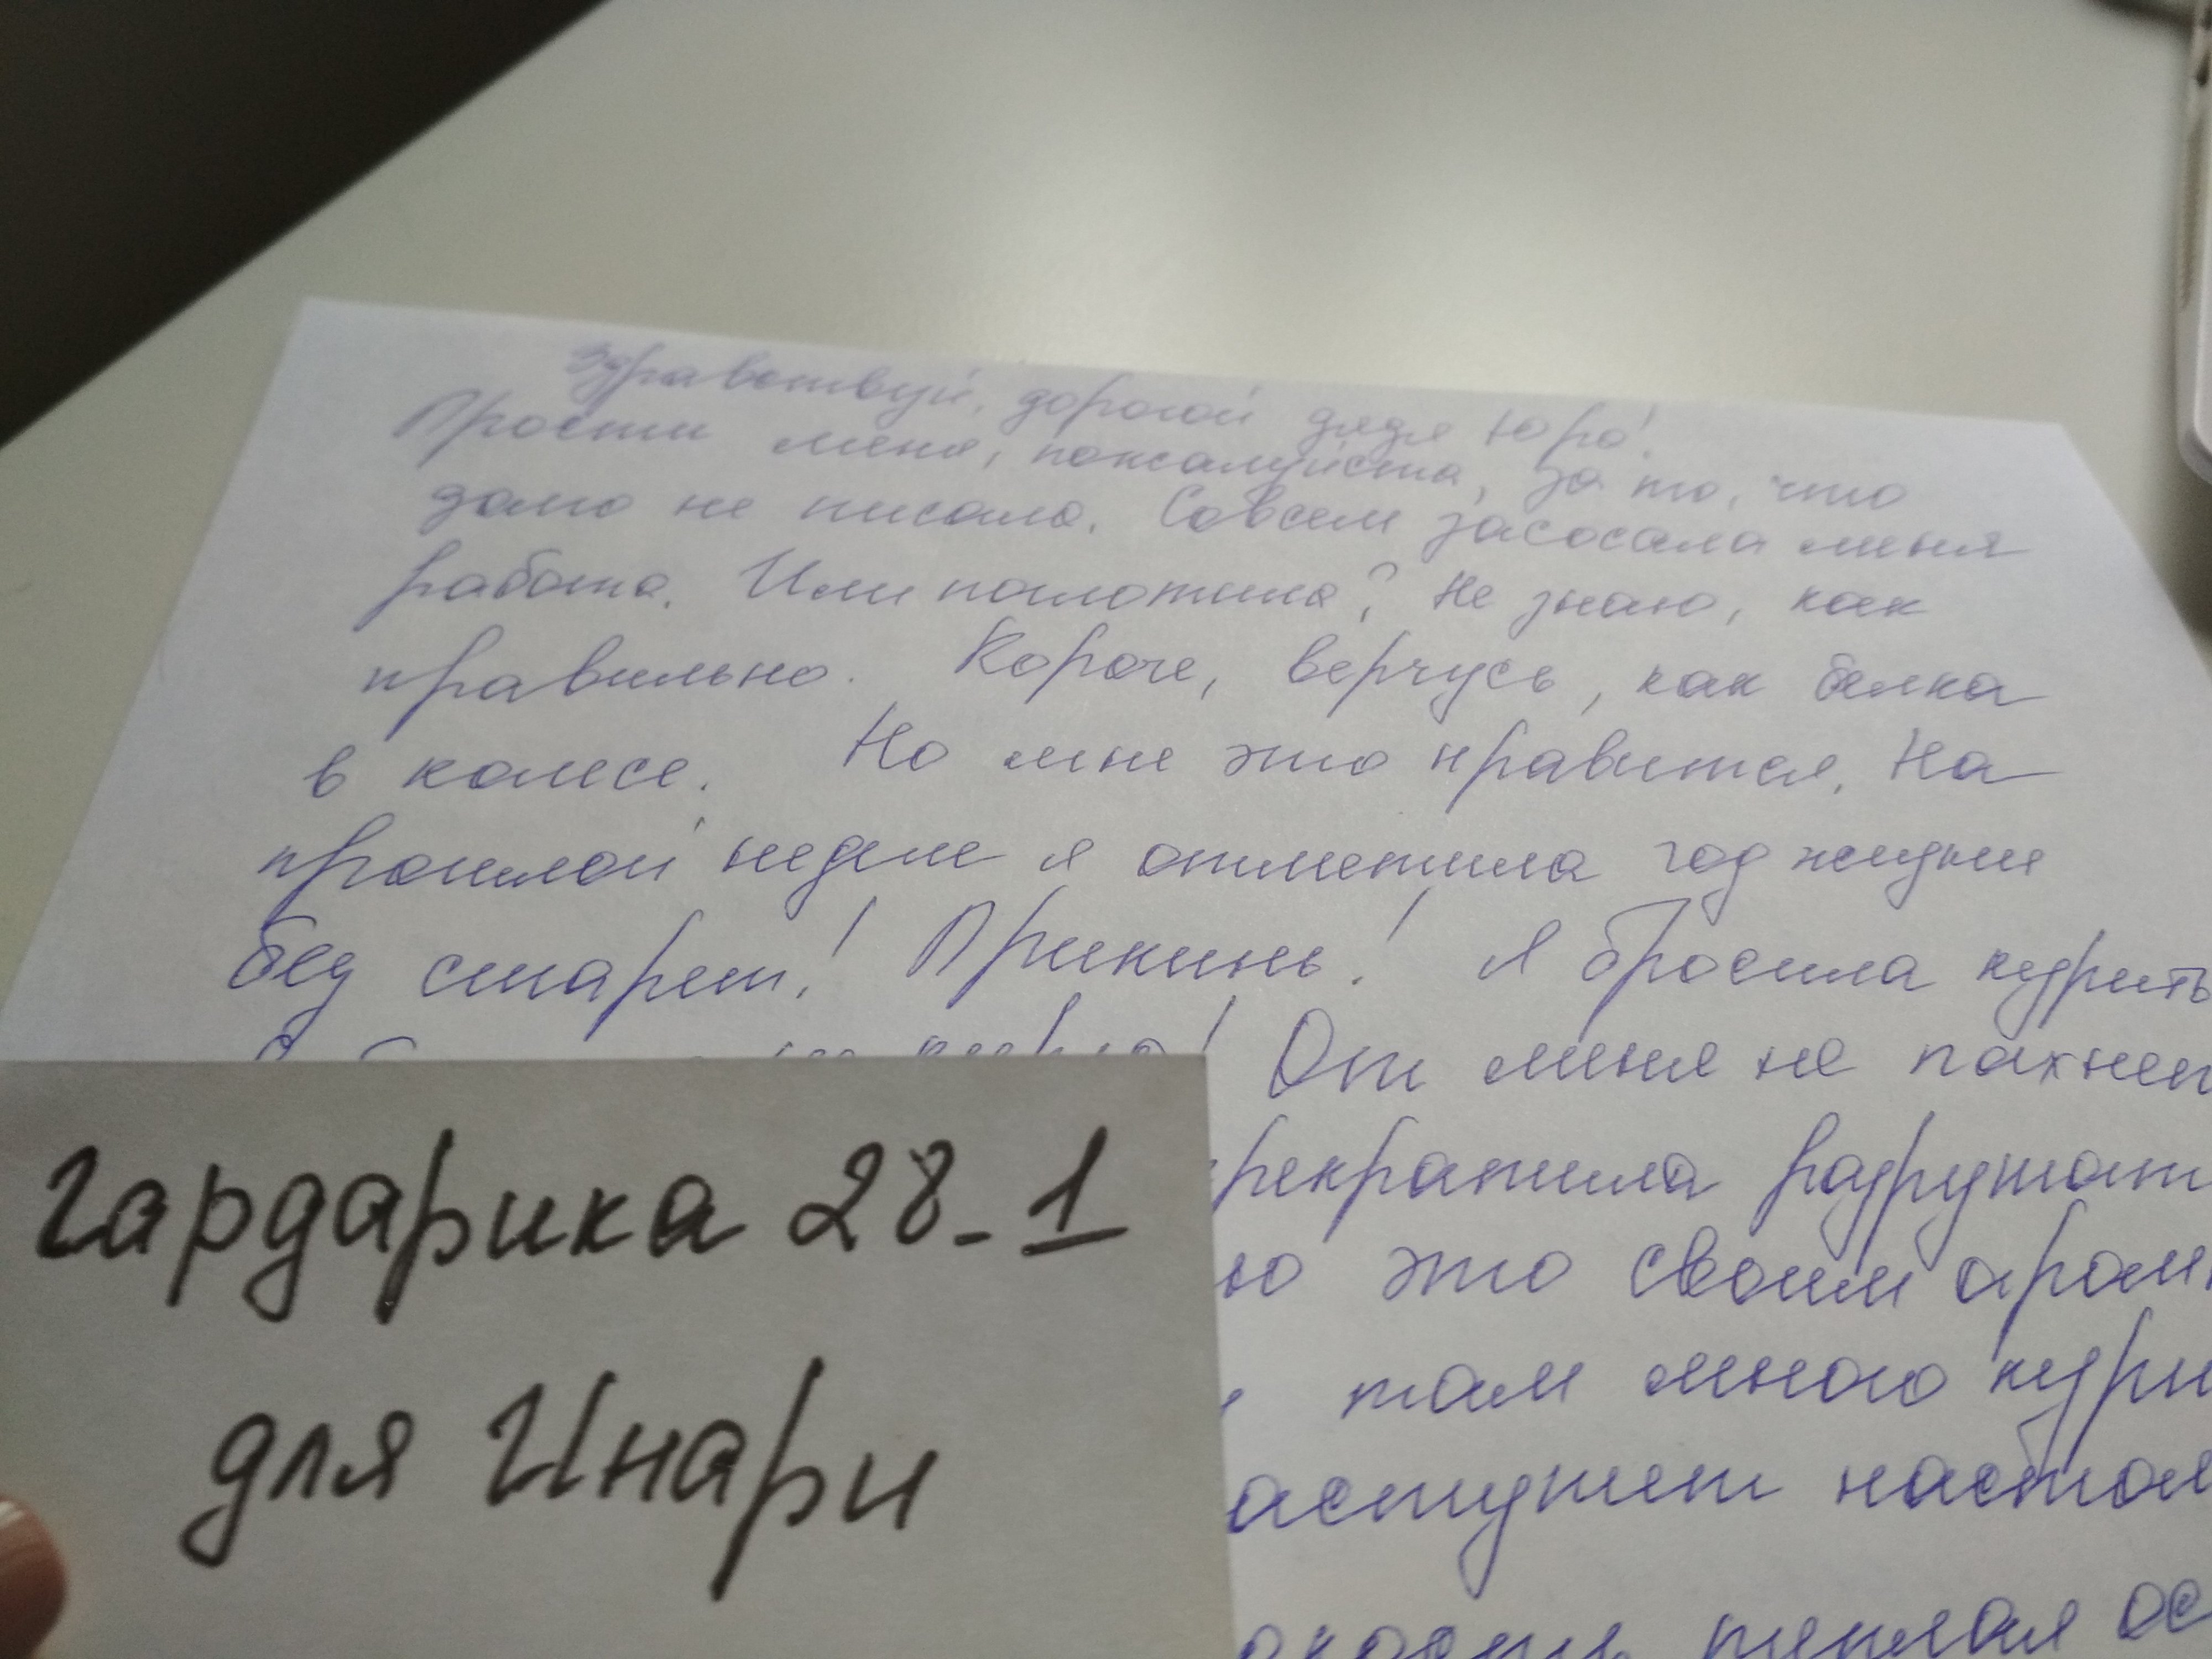 Здравствуй, дорогой дядя Юра!
Прости меня, пожалуйста, за то, что
долго не писала. Совсем засосала меня
работа. Или поглотила? Не знаю, как
правильно. Короче, верчусь, как белка
в колесе. Но мне это нравится. На
прошлой неделе я отметила год жизни
без сигарет! Прикинь! Я бросила курить
От меня не пахнет
рекратила разрушать
ю это своим аром
там много кури
аступит настоя
теплая ос
Гардарика 28-1
для Инари